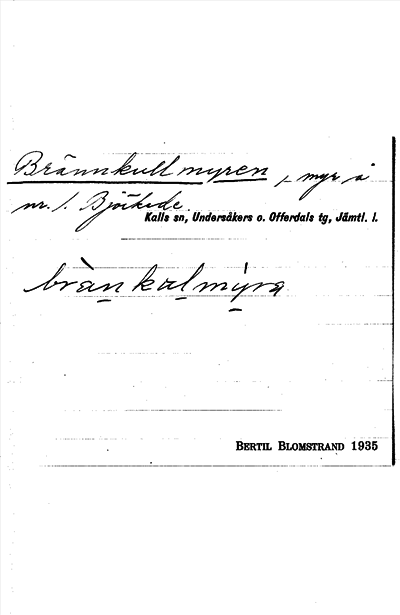 Brännkullmyren, myr å
nr. 1. Björkede.
Kalls sn, Undersåkers o. Offerdals tg, Jämtl. l.
brànkəlmýra
BERTIL BLOMSTRAND 1935